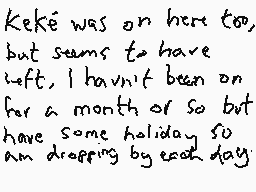 Keké was on here too,
but seems to have
left, I havn't been on
for a month or so but
have some holiday so
am dropping by each day.